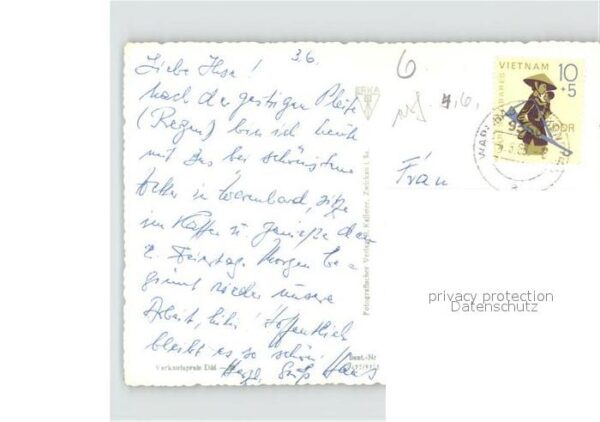 3.6.
Liebe Ilse!
Nach der gestrigen Pleite
(Regen) bin ich heute
mit bei schönstem
in Warmbad, sitze
im Kaffee u. genieße den
2. Feiertag. Morgen be-
ginnt wieder unsere
Arbeit, hihi! Hoffentlich
bleibt es so schön!
Herzl. Gruß Hans
Verkaufspreis DM
Best.-Nr
ERKA
Fotografischer Verlag R. Kallmer, Zwickau i. Sa.
6
Frau
VIETNAM
10
+5
DDR
privacy protection
Datenschutz